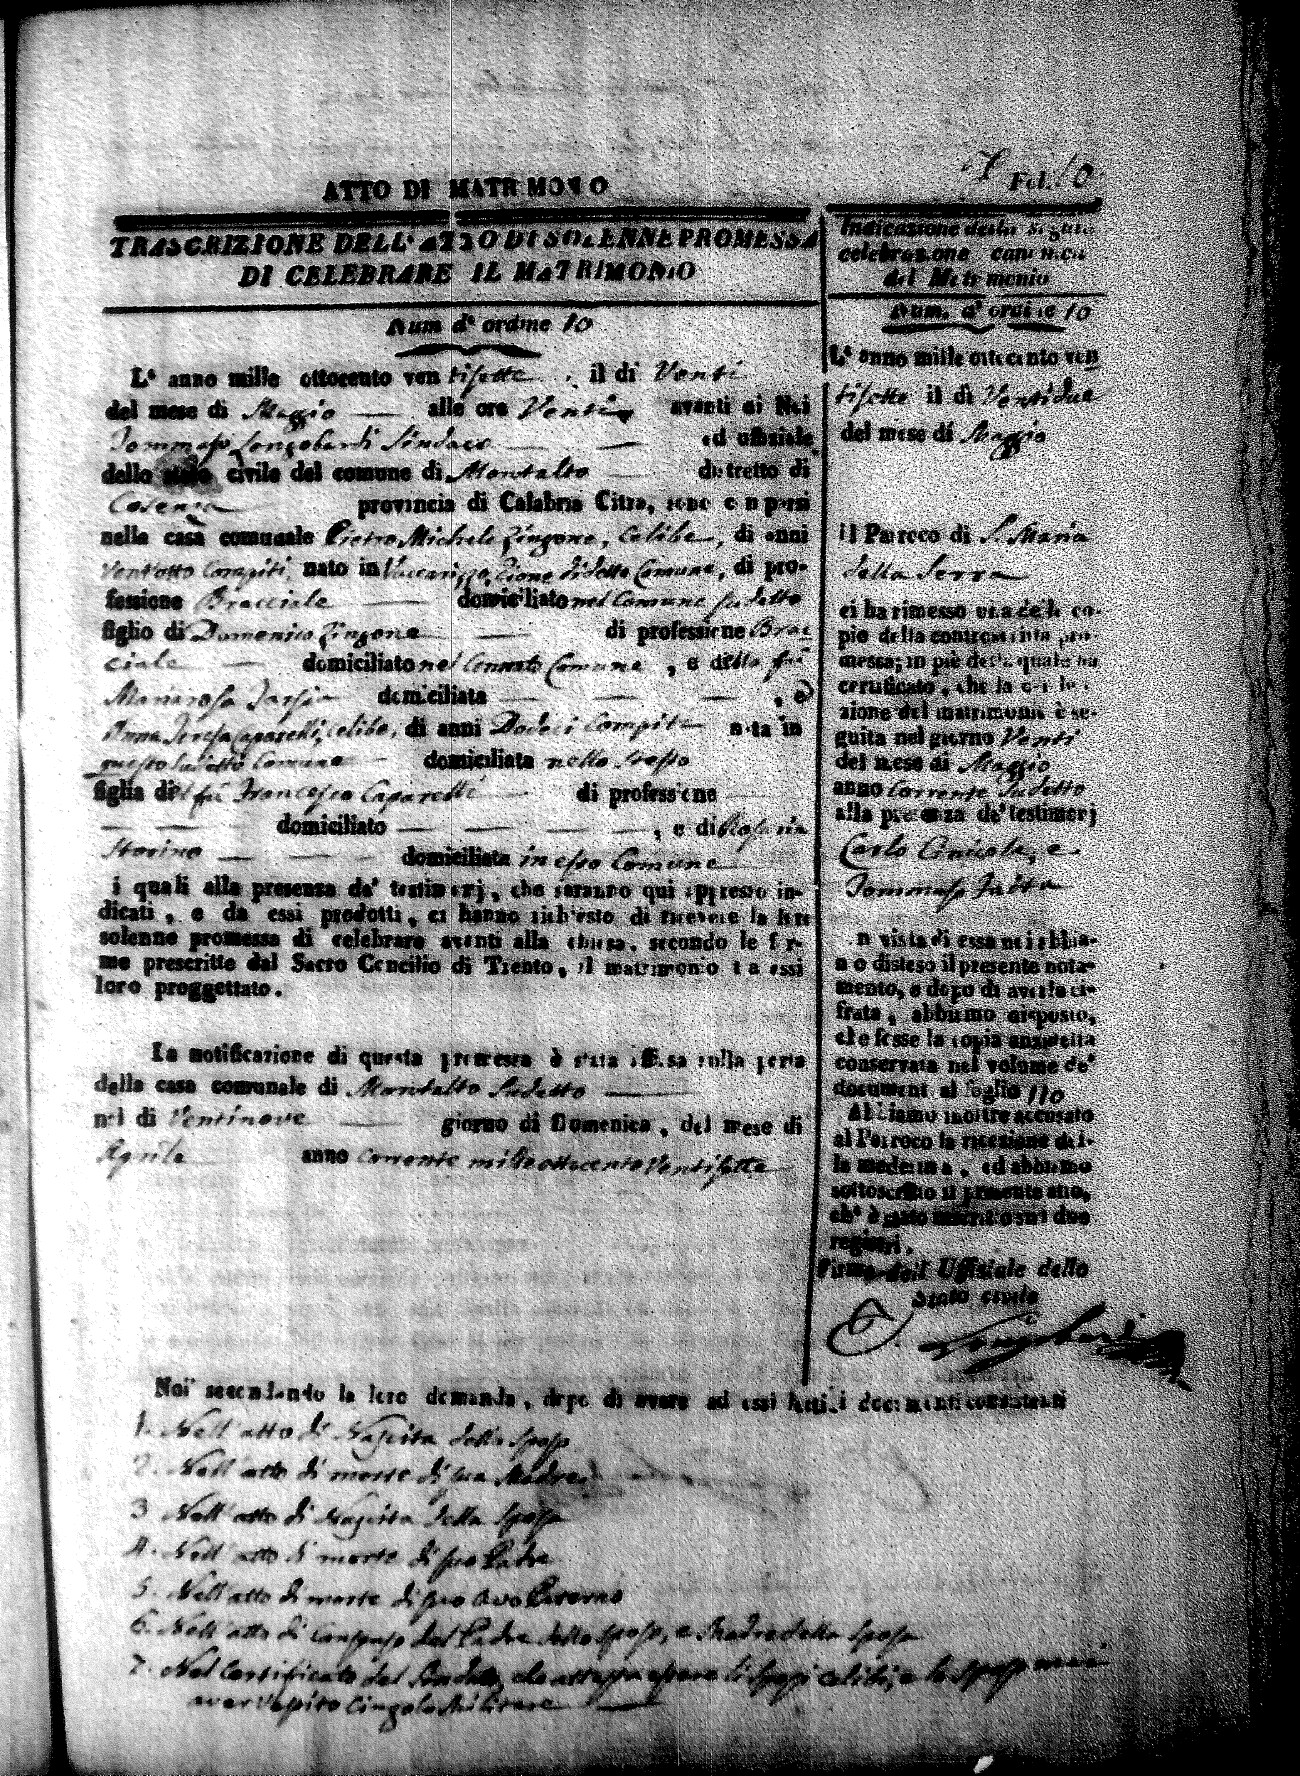 Fol. 10
ATTO DI MATRIMONIO
TRASCRIZIONE DELL' ATTO DI SOLENNE PROMESSA
DI CELEBRARE IL MATRIMONIO
Num d' ordine 10
L' anno mille ottocento ven tisette il di Venti
del mese di Maggio alle ore Venti avanti di Noi
Tommaso Longobardi Sindaco ed uffiziale
dello stato civile del comune di Montalto distretto di
Cosenza provincia di Calabria Citra, sono comparsi
nella casa comunale Pietro Michele Zingone, Celibe, di anni
Ventotto Compiti nato in Vaccarizzo, di detto Comune, di pro-
fessione Bracciale domiciliato nel Comune sudetto
figlio di Domenico Zingone di professione Brac
ciale domiciliato nel Comune, e della fu
Mariarosa domiciliata, e
Anna Teresa Caparelli, celibe, di anni Dodeci Compiti nata in
questo sudetto Comune domiciliata nello stesso
figlia del fu Francesco Caparelli di professione
domiciliato, e di Rosaria
Storino domiciliata in esso Comune
i quali alla presenza de' testimonj, che saranno qui appresso in-
dicati, e da essi prodotti, ci hanno richiesto di ricevere la loro
solenne promessa di celebrare avanti alla chiesa, secondo le for-
me prescritte dal Sacro Concilio di Trento, il matrimonio tra essi
loro proggettato.
La notificazione di questa promessa è stata affissa sulla porta
della casa comunale di Montalto Sudetto
nel di Ventinove giorno di Domenica, del mese di
Aprile anno Corrente mille ottocento Ventisette
Indicazione della seguita
celebrazione canonica
del Matrimonio
Num. d' ordine 10
L' anno mille ottocento ven
tisette il di Ventidue
del mese di Maggio
il Parroco di S. Maria
della Serra
ci ha rimesso una delle co-
pie della controscritta pro-
messa; in piè della quale ha
certificato, che la celebra-
zione del matrimonio è se-
guita nel giorno Venti
del mese di Maggio
anno Corrente Sudetto
alla presenza de' testimonj
Carlo, e
Tommaso
In vista di essa noi abbia-
mo disteso il presente nota-
mento, e dopo di averla ci-
frata, abbiamo disposto,
che fosse la copia anzidetta
conservata nel volume de'
documenti al foglio 110
Abbiamo inoltre accusato
al Parroco la ricezione del-
la medesima, ed abbiamo
sottoscritto il presente atto,
ch' è stato inscritto sui due
registri.
Firma dell Uffiziale dello
Stato civile
Longobardi
Noi secondando la loro domanda, dopo di avere ad essi letti i documenti consistenti
1. Nell' atto di Nascita dello sposo
2. Nell' atto di morte di sua Madre
3. Nell' atto di Nascita della sposa
4. Nell' atto di morte di suo Padre
5. Nell' atto di morte di suo Avo Paterno
6. Nell' atto di Consenso del Padre dello sposo, e Madre della sposa
7. Nel Certificato del Sindaco, che attesta essere li sposi celibi, e lo sposo mai
aver Vestito Cingolo Militare